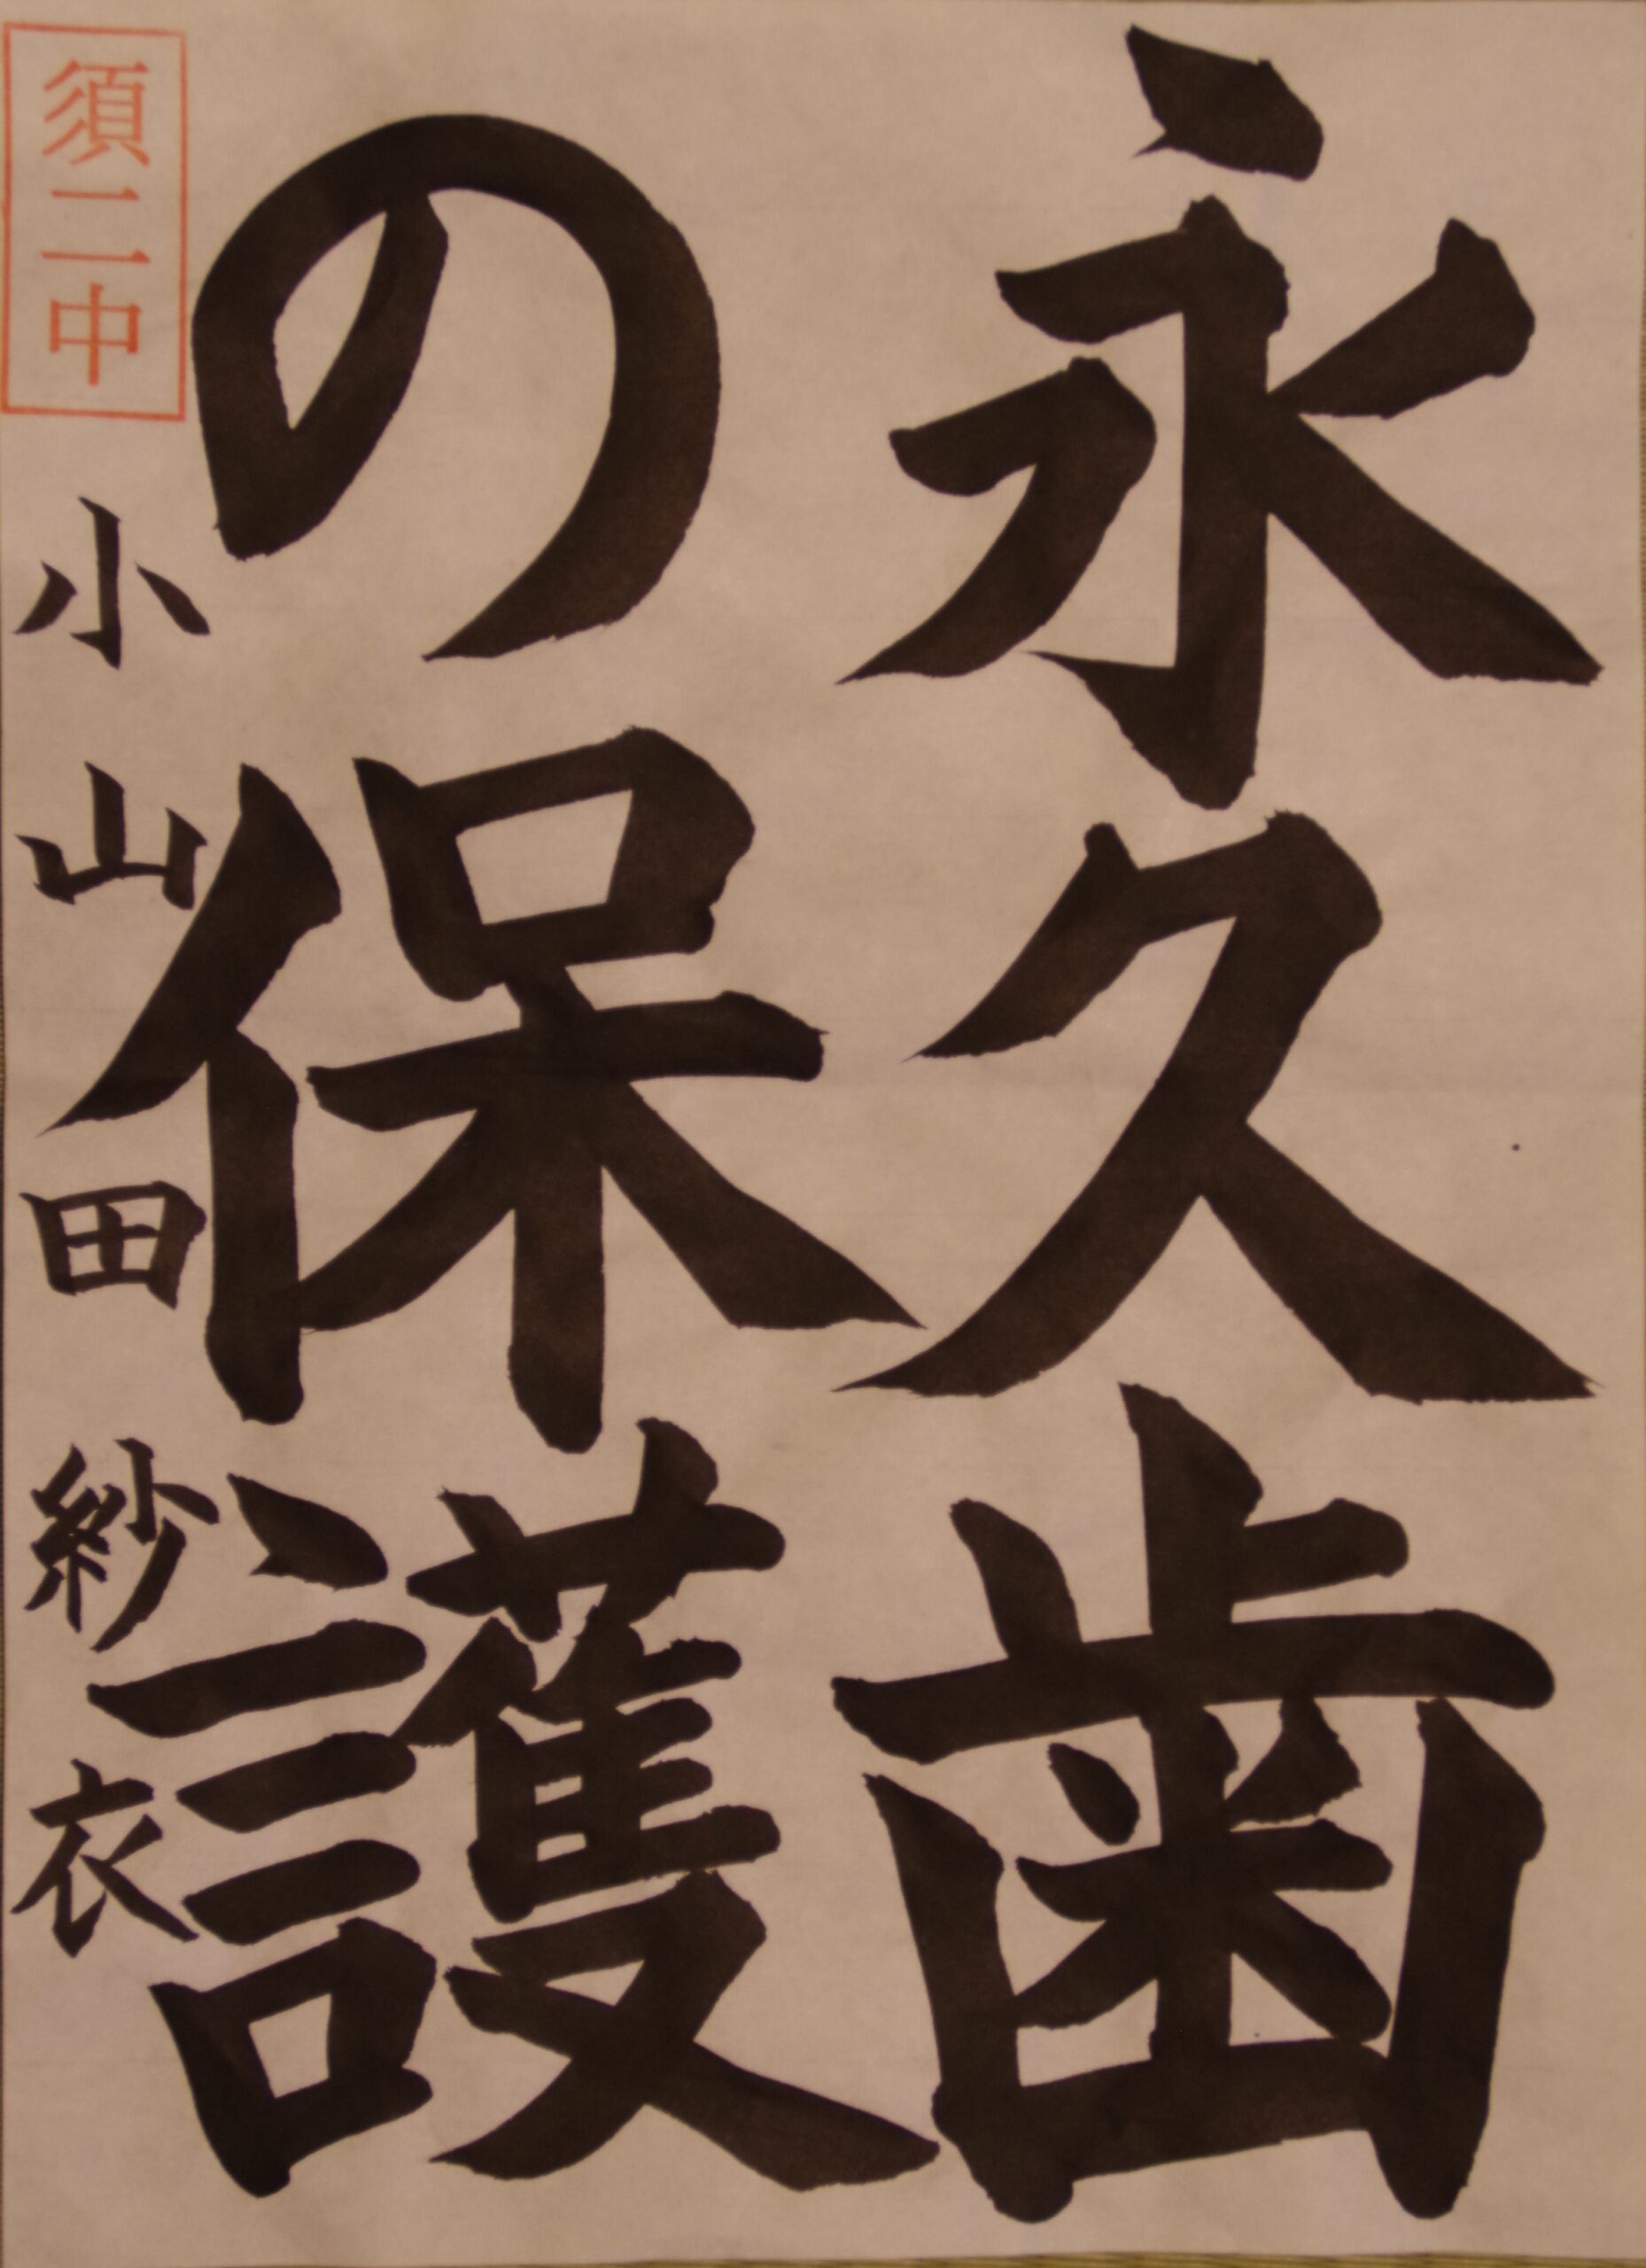 永久歯
の保護
須二中
小山田紗衣